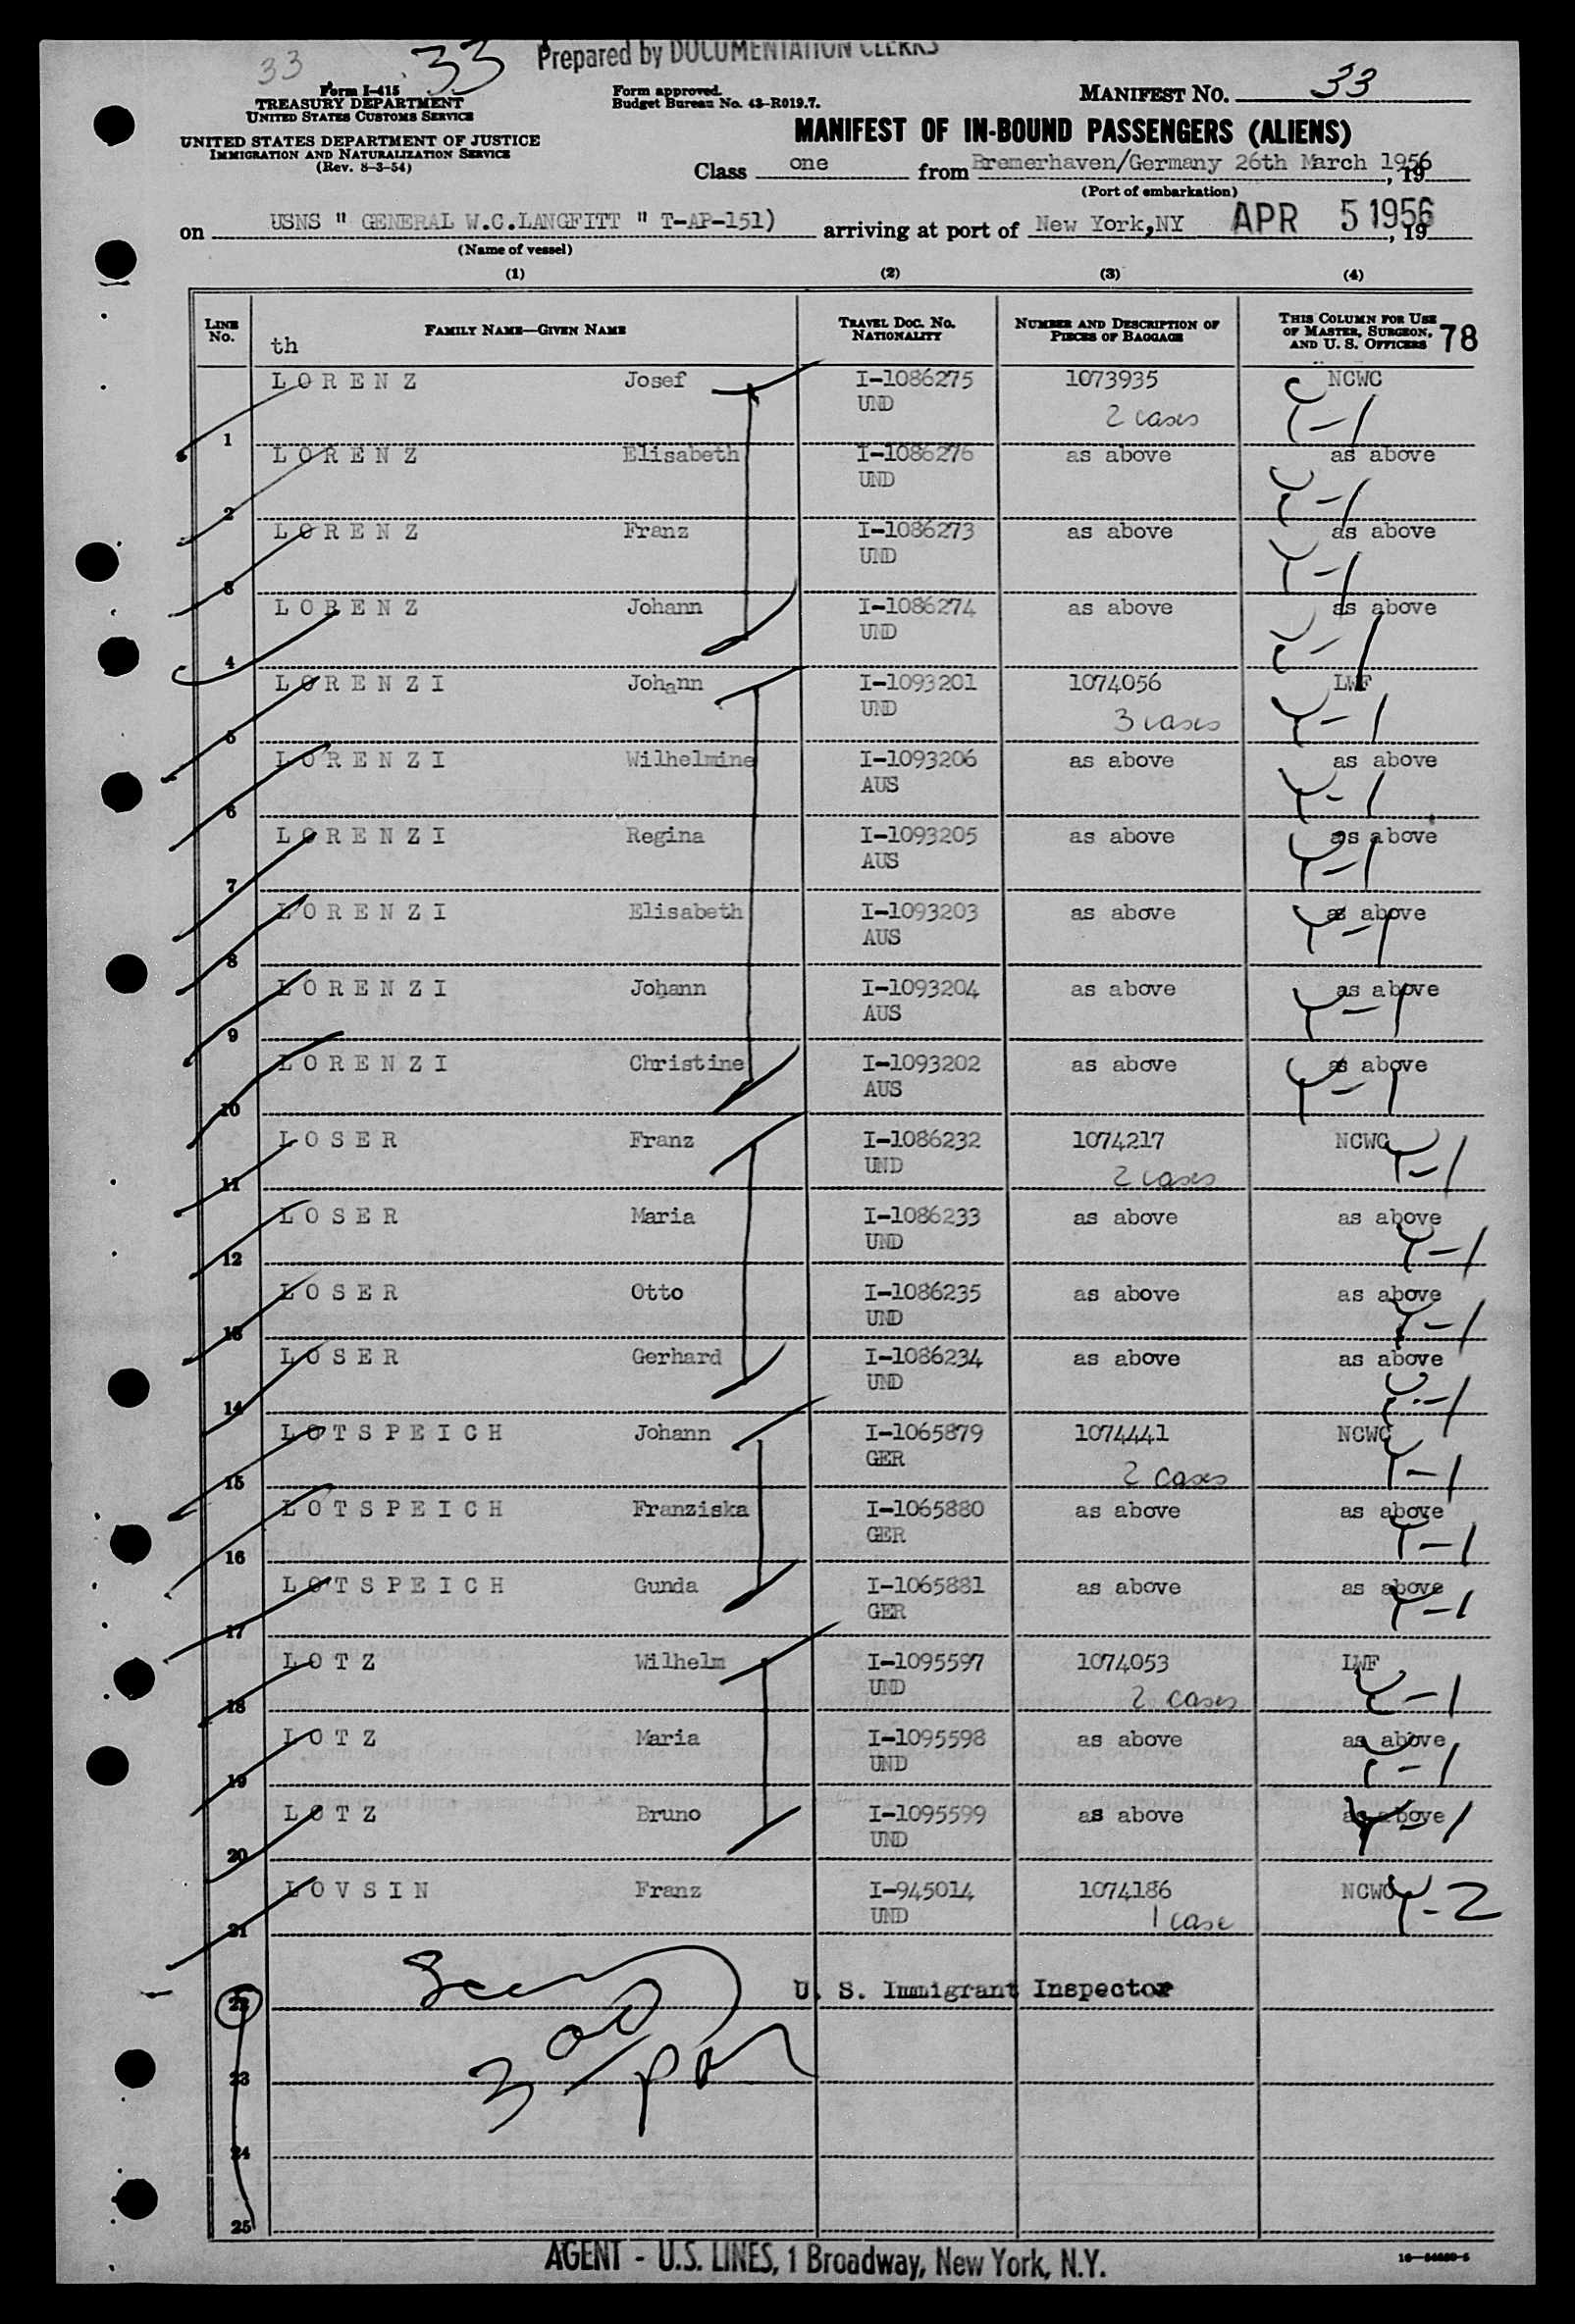 33 33 Prepared by DOCUMENTATION CLERKS
Form I-415
TREASURY DEPARTMENT
UNITED STATES CUSTOMS SERVICE
UNITED STATES DEPARTMENT OF JUSTICE
IMMIGRATION AND NATURALIZATION SERVICE
(Rev. 8-3-54)
Form approved.
Budget Bureau No. 43-R019.7.
MANIFEST NO. 33
MANIFEST OF IN-BOUND PASSENGERS (ALIENS)
Class one from Bremerhaven/Germany 26th March 1956, 19
(Port of embarkation)
on USNS " GENERAL W.C.LANGFITT " T-AP-151) arriving at port of New York,NY APR 5 1956, 19
(Name of vessel)
(1) (2) (3) (4)
LINE No. FAMILY NAME—GIVEN NAME TRAVEL DOC. NO. NATIONALITY NUMBER AND DESCRIPTION OF PIECES OF BAGGAGE THIS COLUMN FOR USE OF MASTER, SURGEON, AND U. S. OFFICERS 78
th
L O R E N Z Josef I-1086275 1073935 NCWC
1 UND 2 cases
L O R E N Z Elisabeth I-1086276 as above as above
2 UND
L O R E N Z Franz I-1086273 as above as above
3 UND
L O R E N Z Johann I-1086274 as above as above
4 UND
L O R E N Z I Johann I-1093201 1074056 LWF
5 UND 3 cases
L O R E N Z I Wilhelmine I-1093206 as above as above
6 AUS
L O R E N Z I Regina I-1093205 as above as above
7 AUS
L O R E N Z I Elisabeth I-1093203 as above as above
8 AUS
L O R E N Z I Johann I-1093204 as above as above
9 AUS
L O R E N Z I Christine I-1093202 as above as above
10 AUS
L O S E R Franz I-1086232 1074217 NCWC
11 UND 2 cases
L O S E R Maria I-1086233 as above as above
12 UND
L O S E R Otto I-1086235 as above as above
13 UND
L O S E R Gerhard I-1086234 as above as above
14 UND
L O T S P E I C H Johann I-1065879 1074441 NCWC
15 GER 2 cases
L O T S P E I C H Franziska I-1065880 as above as above
16 GER
L O T S P E I C H Gunda I-1065881 as above as above
17 GER
L O T Z Wilhelm I-1095597 1074053 LWF
18 UND 2 cases
L O T Z Maria I-1095598 as above as above
19 UND
L O T Z Bruno I-1095599 as above as above
20 UND
L O V S I N Franz I-945014 1074186 NCWC
21 UND 1 case
22 U. S. Immigrant Inspector
23
24
25
AGENT - U.S. LINES, 1 Broadway, New York, N.Y.